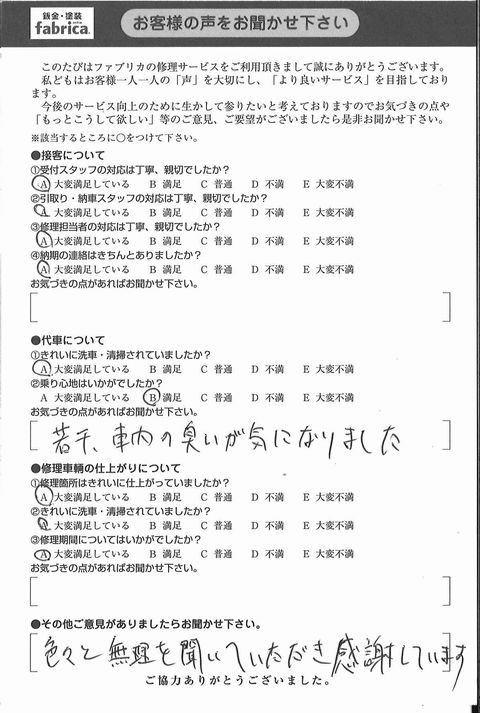 鈑金・塗装
fabrica.
お客様の声をお聞かせ下さい
このたびはファブリカの修理サービスをご利用頂きまして誠にありがとうございます。
私どもはお客様一人一人の「声」を大切にし、「より良いサービス」を目指しており
ます。
今後のサービス向上のために生かして参りたいと考えておりますのでお気づきの点や
「もっとこうして欲しい」等のご意見、ご要望がございましたら是非お聞かせ下さい。
※該当するところに○をつけて下さい。
●接客について
①受付スタッフの対応は丁寧、親切でしたか?
A 大変満足している B 満足 C 普通 D 不満 E 大変不満
②引取り・納車スタッフの対応は丁寧、親切でしたか?
A 大変満足している B 満足 C 普通 D 不満 E 大変不満
③修理担当者の対応は丁寧、親切でしたか?
A 大変満足している B 満足 C 普通 D 不満 E 大変不満
④納期の連絡はきちんとありましたか?
A 大変満足している B 満足 C 普通 D 不満 E 大変不満
お気づきの点があればお聞かせ下さい。
●代車について
①きれいに洗車・清掃されていましたか?
A 大変満足している B 満足 C 普通 D 不満 E 大変不満
②乗り心地はいかがでしたか?
A 大変満足している B 満足 C 普通 D 不満 E 大変不満
お気づきの点があればお聞かせ下さい。
若干、車内の臭いが気になりました
●修理車輌の仕上がりについて
①修理箇所はきれいに仕上がっていましたか?
A 大変満足している B 満足 C 普通 D 不満 E 大変不満
②きれいに洗車・清掃されていましたか?
A 大変満足している B 満足 C 普通 D 不満 E 大変不満
③修理期間についてはいかがでしたか?
A 大変満足している B 満足 C 普通 D 不満 E 大変不満
お気づきの点があればお聞かせ下さい。
●その他ご意見がありましたらお聞かせ下さい。
色々と無理を聞いていただき感謝しています
ご協力ありがとうございました。